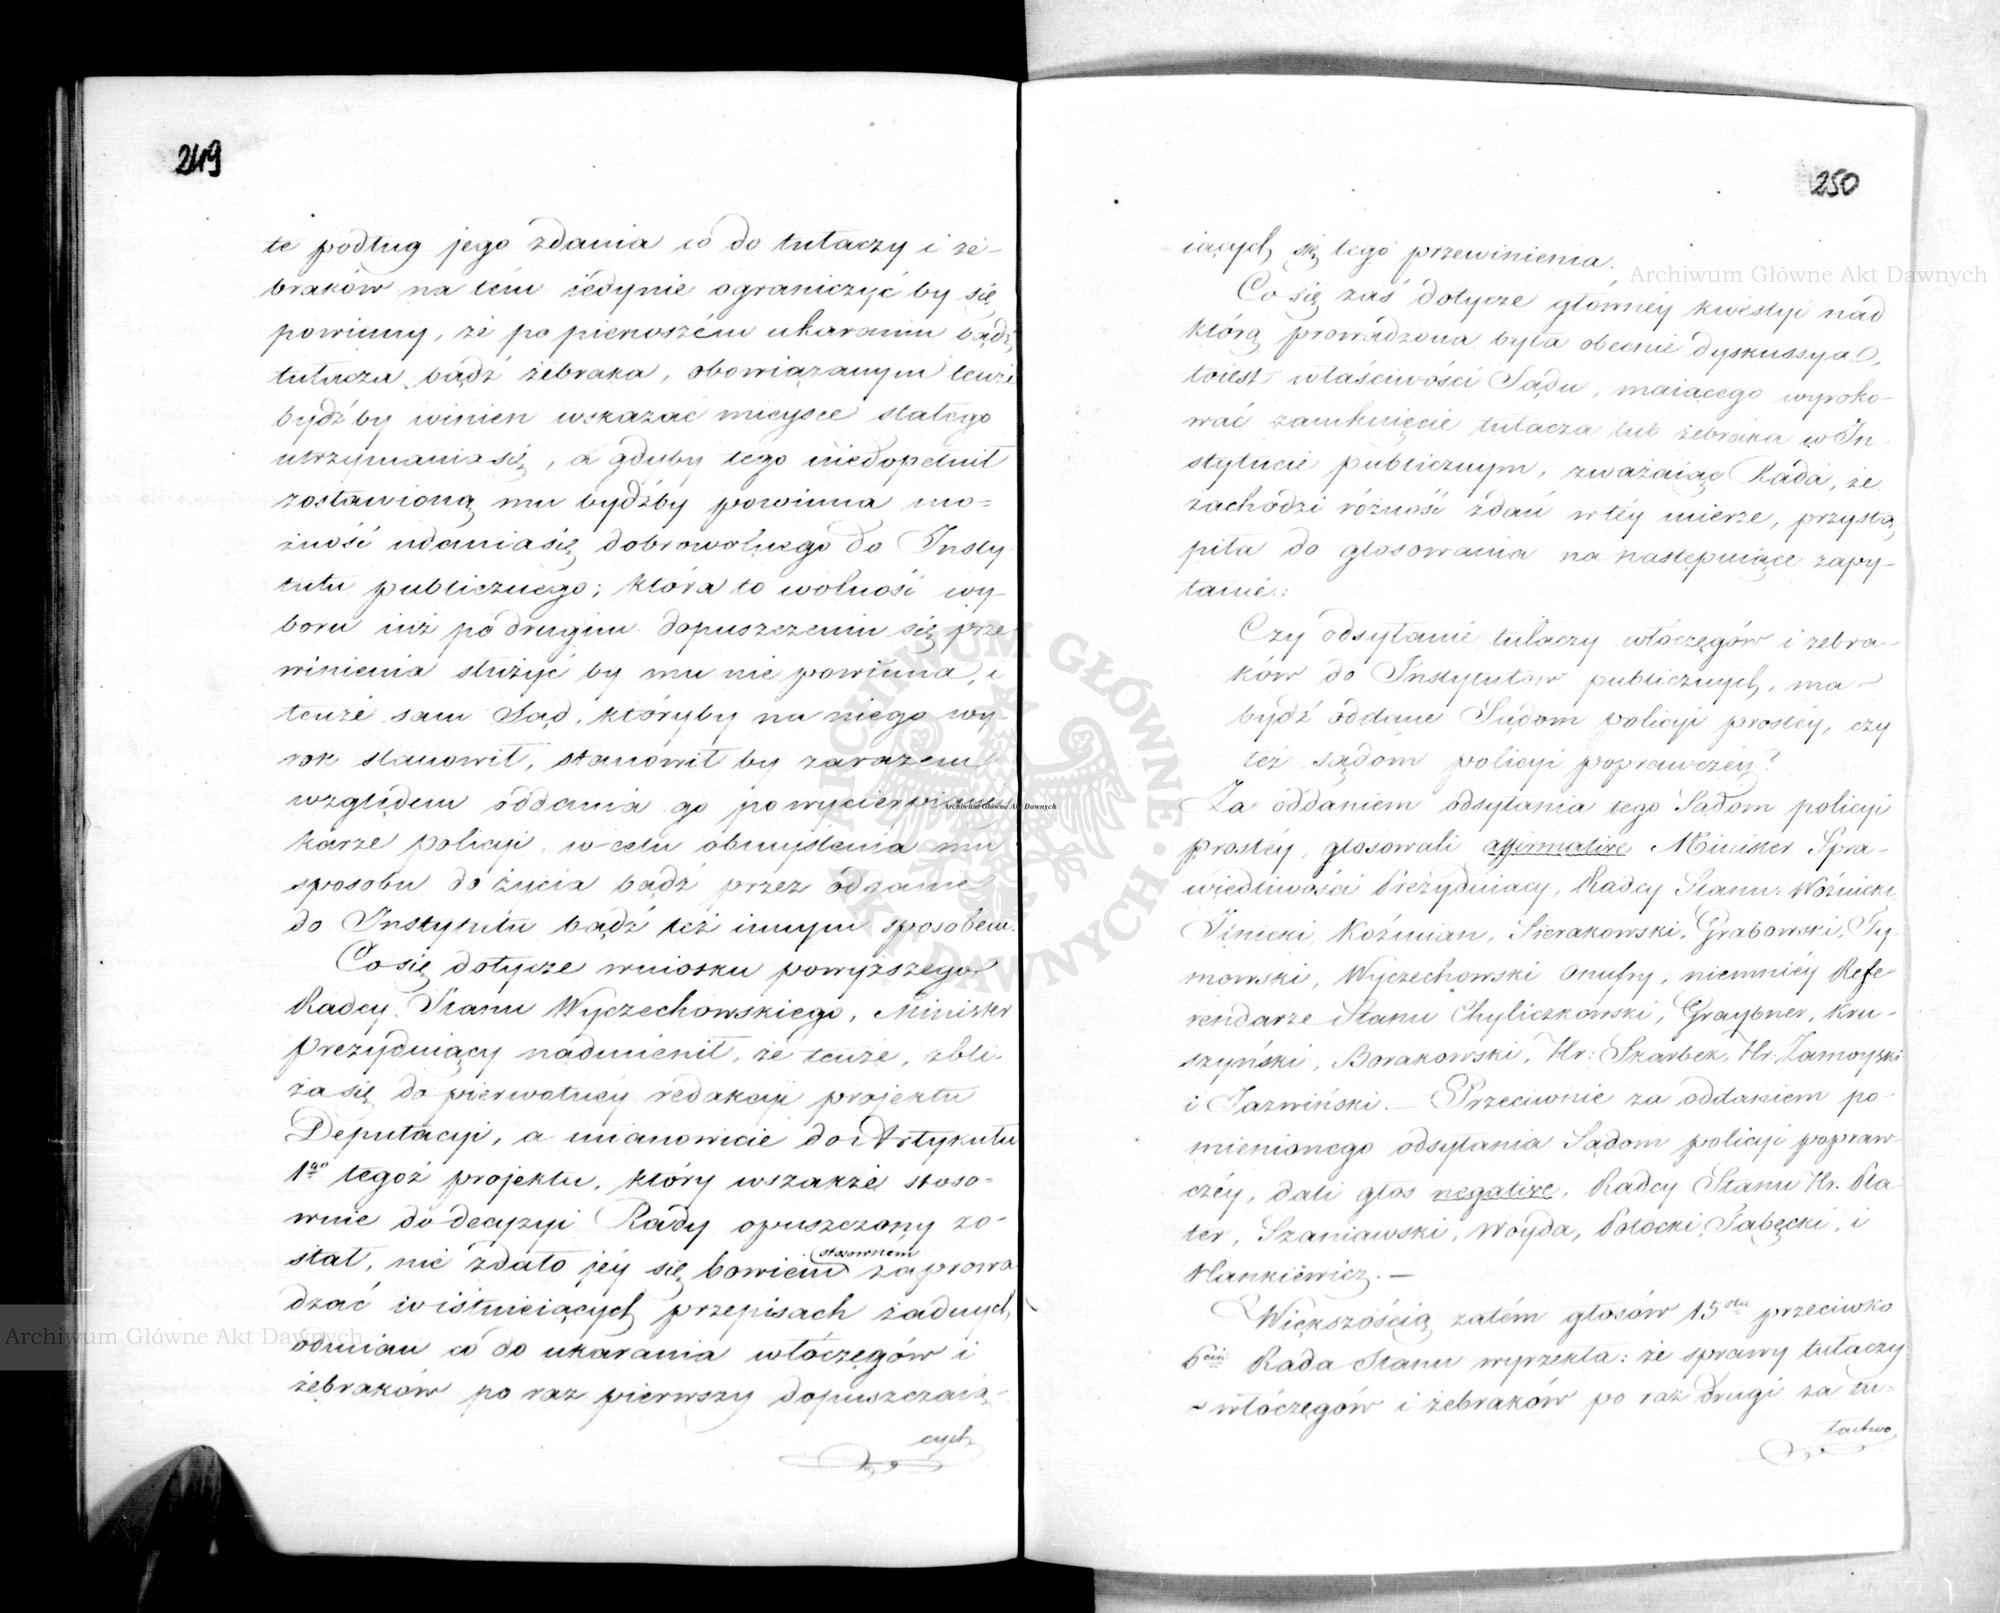 249
te podług jego zdania co do tułaczy i że-
braków na tém iedynie ograniczyć by się
powinny, że po pierwszém ukaraniu bądź
tułacza bądź żebraka, obowiązanym tenże
bydź by winien wskazać mieysce stałego
utrzymania się, a gdyby tego niedopełnił
zostawioną mu bydźby powinna mo=
żność udania się dobrowolnego do Insty-
tutu publicznego; która to wolność wy-
boru iuż po drugim dopuszczeniu się prze
winienia służyć by mu nie powinna, i
tenże sam Sąd, któryby na niego wy-
rok stanowił, stanowił by zarazem
względem oddania go po wycierpianey
karze policyi, w celu obmyślenia mu
sposobu do życia bądź przez oddanie
do Instytutu bądź też innym sposobem.
Co się dotycze wniosku powyższego
Radcy Stanu Wyczechowskiego, Minister
Prezyduiący nadmienił, że tenże, zbli-
ża się do pierwotney redakcyi projektu
Deputacyi, a mianowicie do Artykułu
1go tegoż projektu, który wszakże stoso-
wnie do decyzyi Rady opuszczony zo-
stał, nie zdało jéy się bowiem stosownem zaprowa
dzać w istnieiących przepisach żadnych
odmian co do ukarania włóczęgów i
żebraków po raz pierwszy dopuszczaią-
cych
250
iących się tego przewinienia.
Co się zaś dotycze główney kwestyi nad
którą prowadzona była obecnie dyskussya,
toiest właściwości Sądu, maiącego wyroko-
wać zamknięcie tułacza lub żebraka w In-
stytucie publicznym, zważaiąc Rada, że
zachodzi różność zdań w téy mierze, przystą
piła do głosowania na następuiące zapy-
tanie:
Czy odsyłanie tułaczy włóczęgów i żebra-
ków do Instytutów publicznych, ma
bydź oddane Sądom policyi prostéy, czy
też sądom policyi poprawczéy?
Za oddaniem odsyłania tego Sądom policyi
prostéy, głosowali affirmative Minister Spra-
wiedliwości Prezyduiący, Radcy Stanu: Woźnicki,
Koźmian, Sierakowski, Grabowski, Ty-
mowski, Wyczechowski Onufry, niemniéy Refe
rendarze Stanu Chyliczkowski, Graybner, Kru-
szyński, Borakowski, Hr: Skarbek, Hr: Zamoyski
i Jazwiński. — Przeciwnie za oddaniem po-
mienionego odsyłania Sądom policyi popraw-
czéy, dali głos negative, Radcy Stanu Hr. Pla-
ter, Szaniawski, Woyda, Potocki, Łabęcki, i
Hankiewicz. —
Większością zatém głosów 15stu przeciwko
6ciu Rada Stanu wyrzekła: że sprawy tułaczy
włóczęgów i żebraków po raz drugi za tu-
łactwo
Archiwum Główne Akt Dawnych
Archiwum Główne Akt Dawnych
Archiwum Główne Akt Dawnych
ARCHIWUM GŁÓWNE AKT DAWNYCH